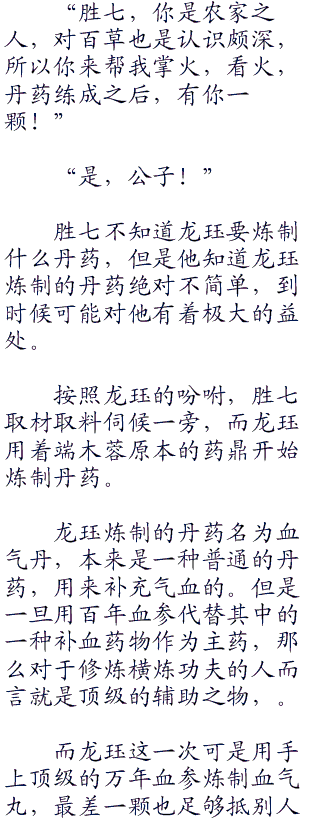 “胜七，你是农家之
人，对百草也是认识颇深，
所以你来帮我掌火，看火，
丹药练成之后，有你一
颗！”
“是，公子！”
胜七不知道龙珏要炼制
什么丹药，但是他知道龙珏
炼制的丹药绝对不简单，到
时候可能对他有着极大的益
处。
按照龙珏的吩咐，胜七
取材取料伺候一旁，而龙珏
用着端木蓉原本的药鼎开始
炼制丹药。
龙珏炼制的丹药名为血
气丹，本来是一种普通的丹
药，用来补充气血的。但是
一旦用百年血参代替其中的
一种补血药物作为主药，那
么对于修炼横炼功夫的人而
言就是顶级的辅助之物，。
而龙珏这一次可是用手
上顶级的万年血参炼制血气
丸，最差一颗也足够抵别人